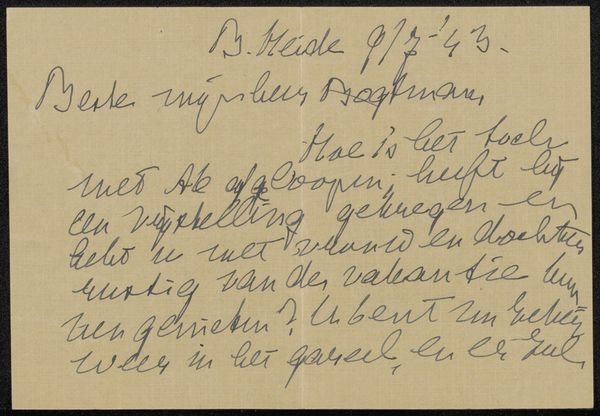 B. Heide 9/7-'43.
Beste mijnheer Bogtman,
Hoe is het toch
met Ab afgeloopen, heeft hij
een vrijstelling gekregen en
hebt u met vrouw en dochter
rustig van de vakantie kun
nen genieten? U bent nu
weer in het gareel, en er zul